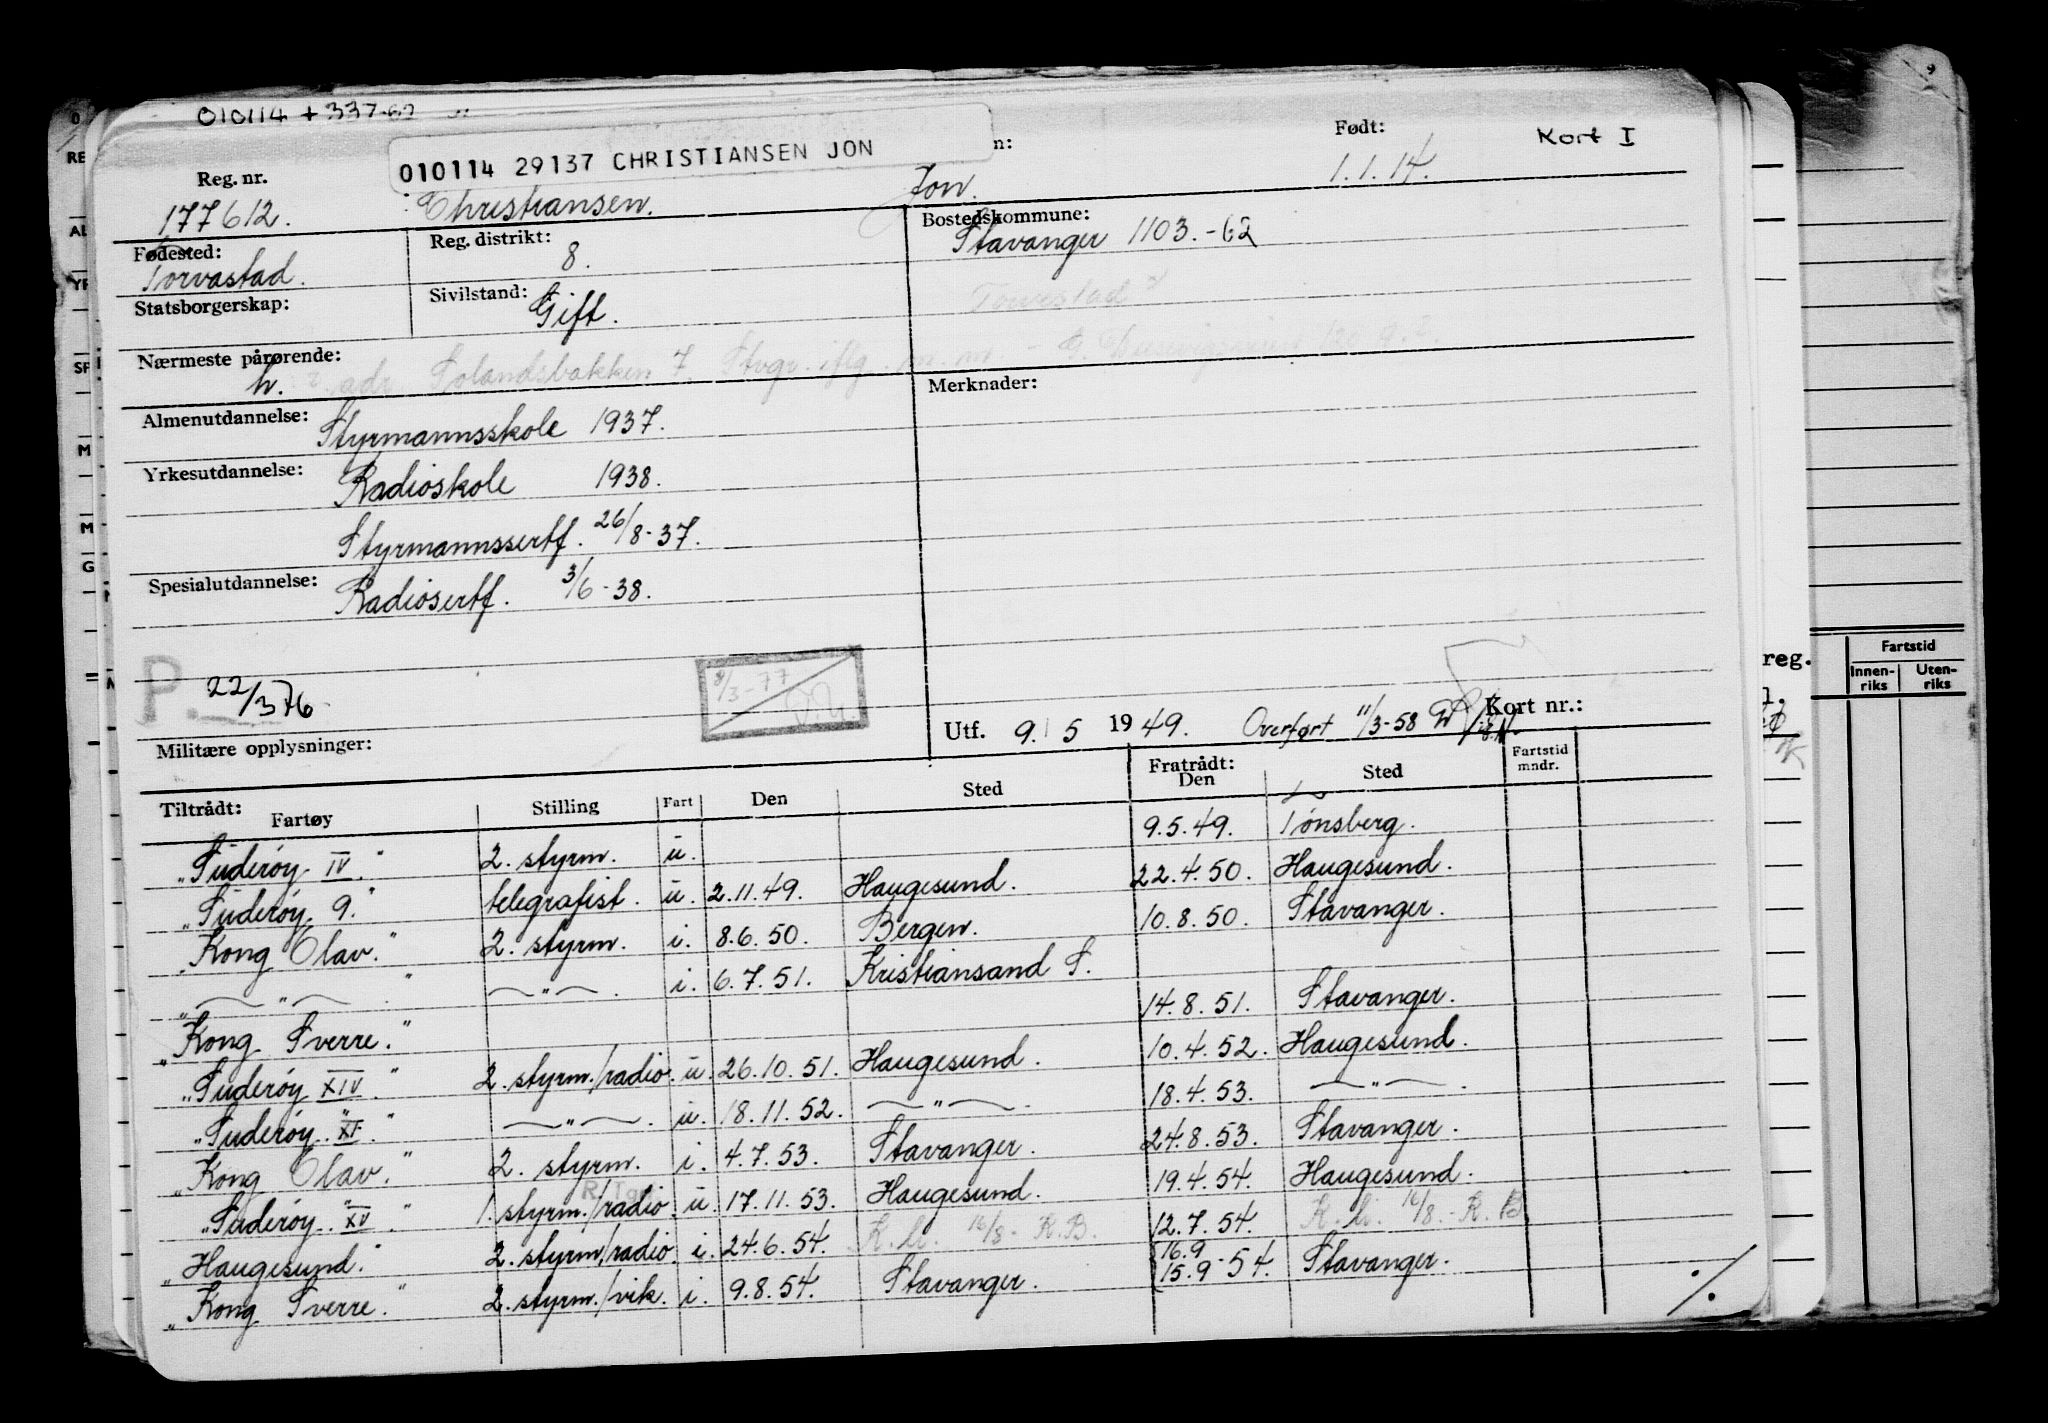 010114 + 337-62
010114 29137 CHRISTIANSEN JON
n: Født: Kort I
Reg. nr. 1.1.14.
177612. Christiansen. Jon.
Fødested: Reg. distrikt: Bostedskommune:
Torvastad. 8. Stavanger 1103.-62
Statsborgerskap: Sivilstand: Gift. Torvestad
Nærmeste pårørende:
h. adr. Solandsbakken 7 Stvgr. iflg. m.m
Almenutdannelse: Merknader:
Styrmannsskole 1937.
Yrkesutdannelse: Radioskole 1938.
Styrmannssertf. 26/8-37.
Spesialutdannelse: Radiosertf. 3/6-38.
P. 22/3 76 8/3-77
Militære opplysninger: Utf. 9/5 1949. Overført 11/3-58 Kort nr.:
Tiltrådt: Fratrådt: Fartstid
Fartøy Stilling Fart Den Sted Den Sted mndr.
„Suderøy IV." 2. styrm. u. 9.5.49. Tønsberg.
„Suderøy 9." telegrafist. u. 2.11.49. Haugesund. 22.4.50. Haugesund.
„Kong Olav." 2. styrm. i. 8.6.50. Bergen. 10.8.50. Stavanger.
„ — " — " — " — . i. 6.7.51. Kristiansand S.
„Kong Sverre." 14.8.51. Stavanger.
„Suderøy XIV" 2. styrm./radio. u. 26.10.51. Haugesund. 10.4.52. Haugesund.
„Suderøy XI." — " — . u. 18.11.52. — " — . 18.4.53. — " — .
„Kong Olav." 2. styrm. i. 4.7.53. Stavanger. 24.8.53. Stavanger.
„Suderøy XV." 1. styrm./radio. u. 17.11.53. Haugesund. 19.4.54. Haugesund.
„Haugesund." 2. styrm/radio. i. 24.6.54. K.M. 16/8- K.B. 12.7.54. K.M. 16/8.- K.B
„Kong Sverre." 2. styrm./vik. i. 9.8.54. Stavanger. 16.9 15.9-54. Stavanger.
./.
reg.
Fartstid
Innen-riks Uten-riks